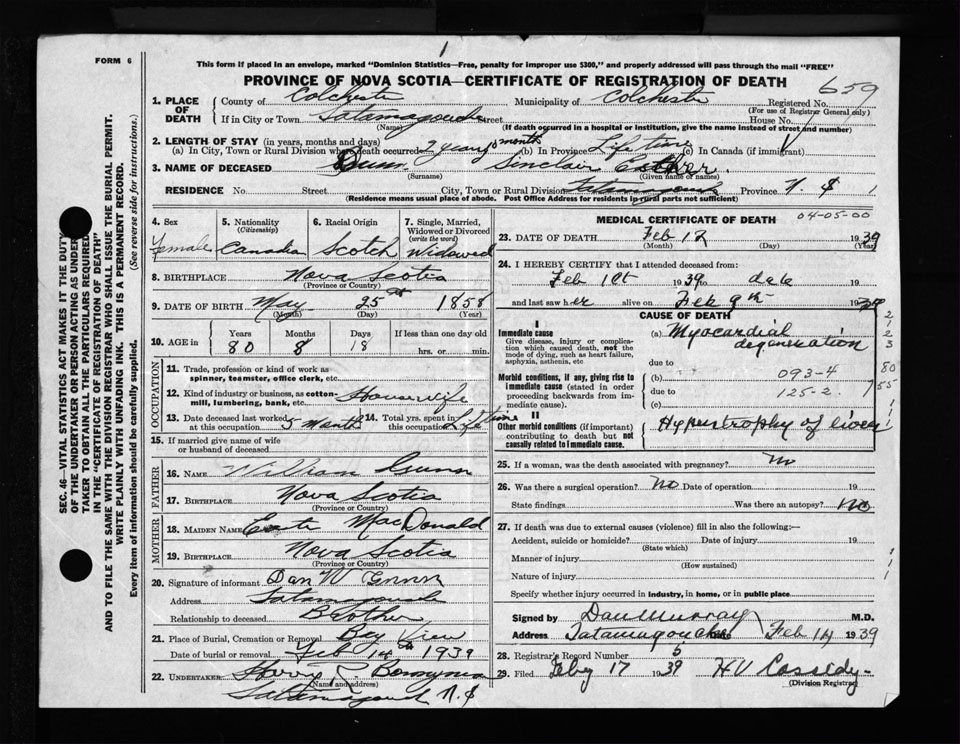 1
FORM 6
This form if placed in an envelope, marked "Dominion Statistics—Free, penalty for improper use $300," and properly addressed will pass through the mail "FREE"
PROVINCE OF NOVA SCOTIA—CERTIFICATE OF REGISTRATION OF DEATH
659
1. PLACE OF DEATH
County of Colchester Municipality of Colchester Registered No.
(For use of Registrar General only)
If in City or Town Tatamagouche Street House No.
(Name) (If death occurred in a hospital or institution, give the name instead of street and number)
2. LENGTH OF STAY (in years, months and days)
(a) In City, Town or Rural Division where death occurred 2 years month (b) In Province Life time (c) In Canada (if immigrant)
3. NAME OF DECEASED Gunn Sinclair Esther.
(Surname) (Given name or names)
RESIDENCE No. Street City, Town or Rural Division Tatamagouche Province N. S
(Residence means usual place of abode. Post Office Address for residents in rural parts not sufficient)
4. Sex
Female
5. Nationality (Citizenship)
Canadian
6. Racial Origin
Scotch
7. Single, Married, Widowed or Divorced (write the word)
Widowed
8. BIRTHPLACE Nova Scotia
(Province or Country)
9. DATE OF BIRTH May 25th 1858
(Month) (Day) (Year)
10. AGE in
Years 80
Months 8
Days 18
If less than one day old
hrs. or min.
OCCUPATION
11. Trade, profession or kind of work as spinner, teamster, office clerk, etc.
12. Kind of industry or business, as cotton-mill, lumbering, bank, etc. Housewife
13. Date deceased last worked at this occupation 5 Month
14. Total yrs. spent in this occupation Lifetime
15. If married give name of wife or husband of deceased
FATHER
16. NAME William Gunn
17. BIRTHPLACE Nova Scotia
(Province or Country)
MOTHER
18. MAIDEN NAME MacDonald
19. BIRTHPLACE Nova Scotia
(Province or Country)
20. Signature of informant Dan W Gunn
Address Tatamagouche
Relationship to deceased Brother
21. Place of Burial, Cremation or Removal Bay View
Date of burial or removal Feb 14th 1939
22. UNDERTAKER
(Name and address)
Tatamagouche N.S
MEDICAL CERTIFICATE OF DEATH
04-05-00
23. DATE OF DEATH Feb 12 1939
(Month) (Day) (Year)
24. I HEREBY CERTIFY that I attended deceased from:
Feb 1st 1939 to date
and last saw her alive on Feb 9th 1939
CAUSE OF DEATH
I
Immediate cause
Give disease, injury or complication which caused death, not the mode of dying, such as heart failure, asphyxia, asthenia, etc.
(a) Myocardial degeneration
due to
Morbid conditions, if any, giving rise to immediate cause (stated in order proceeding backwards from immediate cause).
(b) 093-4
due to 125-2
(c)
II
Other morbid conditions (if important) contributing to death but not causally related to immediate cause.
Hyperstrophy of liver
2
1
2
3
80
55
25. If a woman, was the death associated with pregnancy? No
26. Was there a surgical operation? No Date of operation 19
State findings Was there an autopsy? No
27. If death was due to external causes (violence) fill in also the following:—
Accident, suicide or homicide? Date of injury 19
(State which)
Manner of injury
(How sustained)
Nature of injury
Specify whether injury occurred in industry, in home, or in public place
Signed by Dan Murray M.D.
Address Tatamagouche Date Feb 14 1939
28. Registrar's Record Number 5
29. Filed Feby 17 1939 HV Cassidy
(Division Registrar)
SEC. 46—VITAL STATISTICS ACT MAKES IT THE DUTY
OF THE UNDERTAKER OR PERSON ACTING AS UNDER-
TAKER TO OBTAIN ALL THE PARTICULARS REQUIRED
IN THE "CERTIFICATE OF REGISTRATION OF DEATH"
AND TO FILE THE SAME WITH THE DIVISION REGISTRAR WHO SHALL ISSUE THE BURIAL PERMIT.
WRITE PLAINLY WITH UNFADING INK. THIS IS A PERMANENT RECORD.
Every item of information should be carefully supplied. (See reverse side for instructions.)